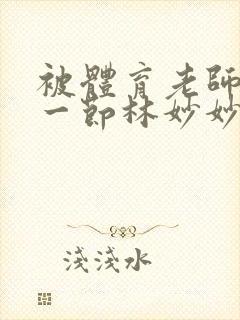 被體育老師
一節林妙妙
淺淺水